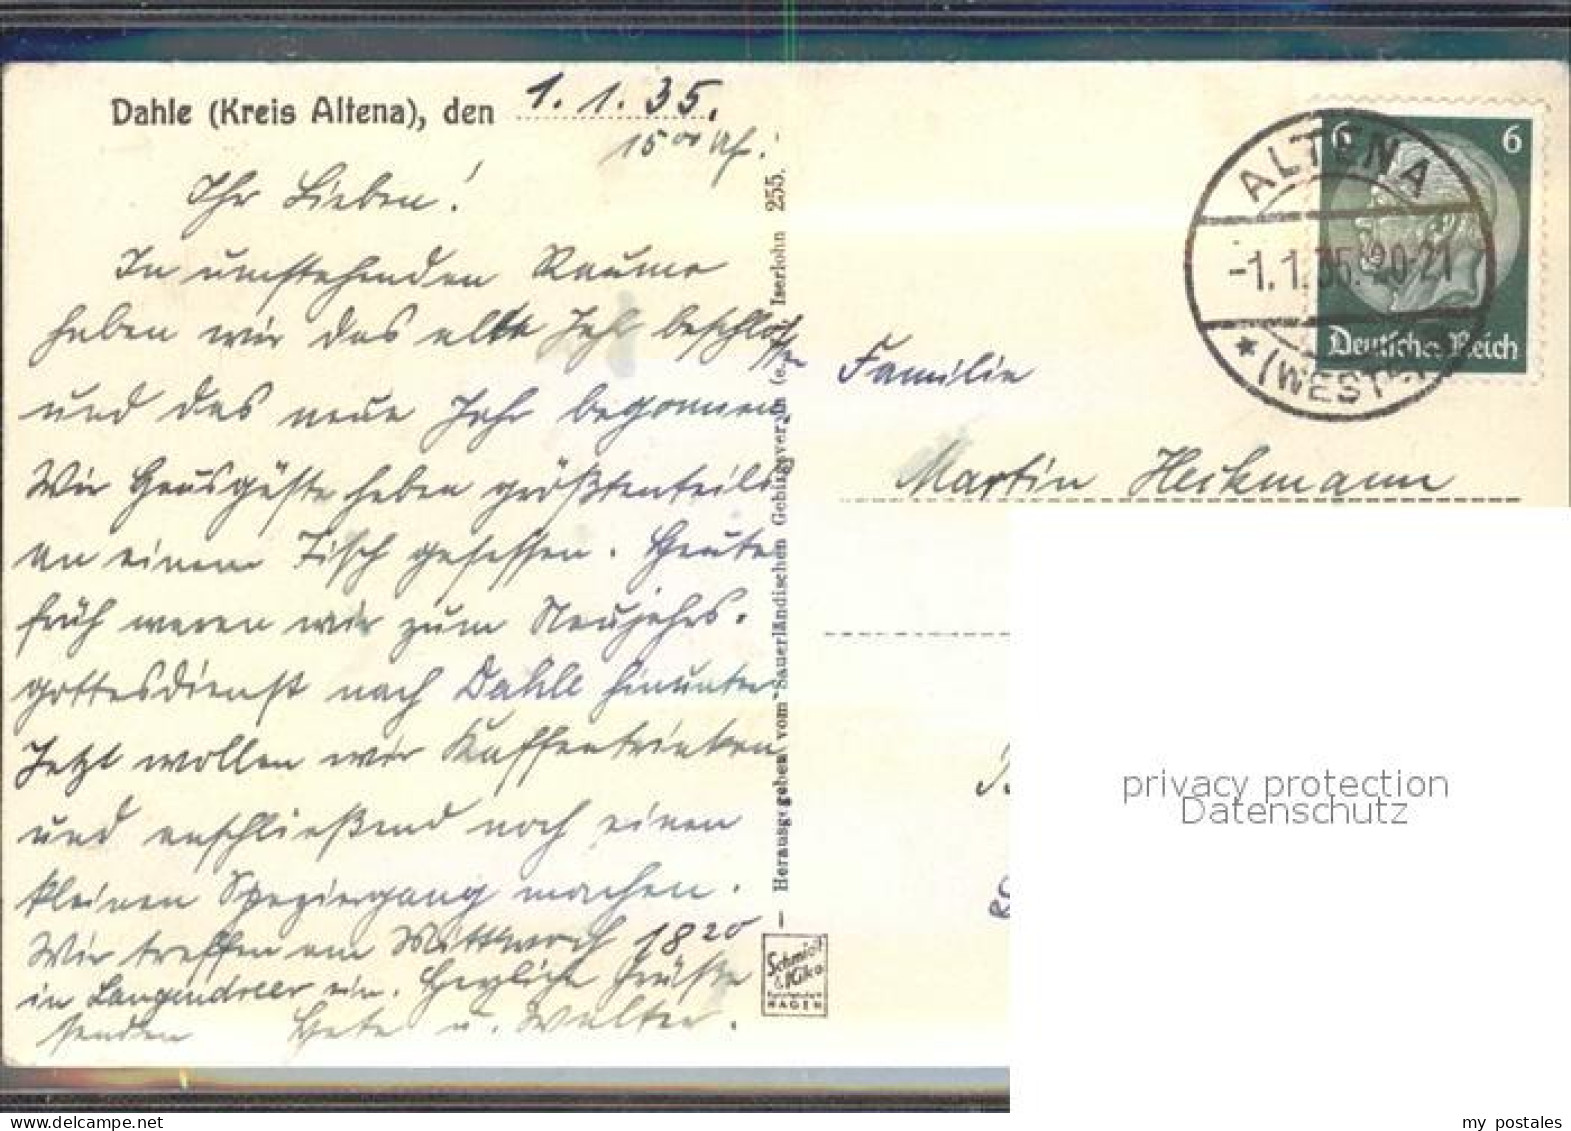 Dahle (Kreis Altena), den 1. 1. 35.
15⁰⁰ Uhr.
Ihr Lieben!
In umstehenden Raume
haben wir das alte Jahr beschlossen
und das neue Jahr begonnen.
Wir Hausgäste haben größtenteils
an einem Tisch gesessen. Heute
früh waren wir zum Neujahrs-
gottesdienst nach Dahle hinunter
Jetzt wollen wir Kaffeetrinken
und anschließend noch einen
kleinen Spaziergang machen.
Wir treffen am Mittwoch 18²⁰
in Langendreer ein. Herzliche Grüße
senden u. Walter.
— Herausgegeben vom Sauerländischen Gebirgsverein (e. Iserlohn 255. —
Schmidt
& Kiko
HAGEN
6 6
Deutsches Reich
ALTENA
-1. 1. 35. 20-21
* (WESTF.)
Familie
Martin Heikmann
privacy protection
Datenschutz
my postales
www.delcampe.net